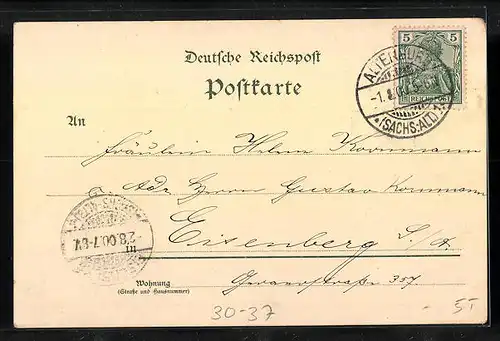 Deutsche Reichspost
Postkarte
5 5
REICHSPOST
ALTENBURG
-1.8.00.
*(SACHS:ALT.)
An
Fräulein Helene Kornmann
Adr. Herrn Gustav Kornmann
in Eisenberg S./A.
2.8.00.7-8V.
Wohnung
(Straße und Hausnummer)
Geraerstraße 357.
30-37
5T